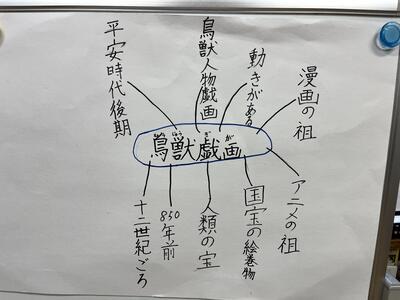 漫画の祖
動きがある
鳥獣人物戯画
平安時代後期
鳥獣戯画
ちょうじゅうぎが
アニメの祖
国宝の絵巻物
人類の宝
850年前
十二世紀ごろ